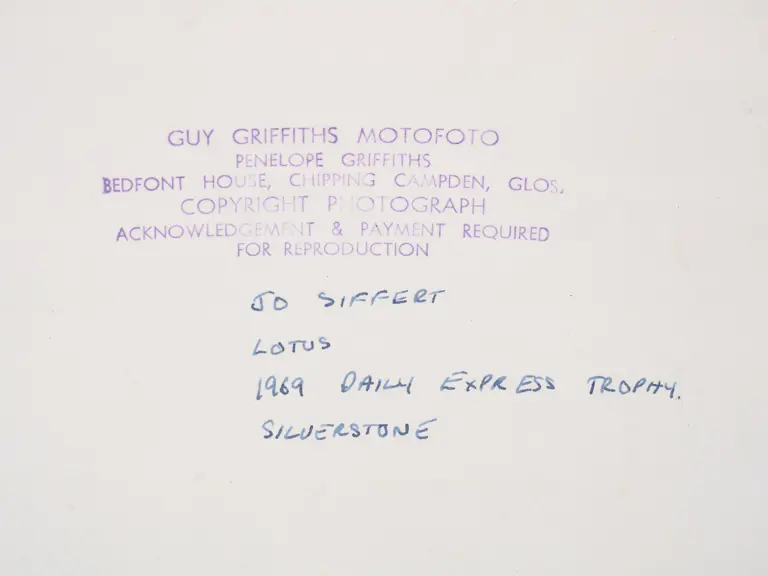 GUY GRIFFITHS MOTOFOTO
PENELOPE GRIFFITHS
BEDFONT HOUSE, CHIPPING CAMPDEN, GLOS.
COPYRIGHT PHOTOGRAPH
ACKNOWLEDGEMENT & PAYMENT REQUIRED
FOR REPRODUCTION
JO SIFFERT
LOTUS
1969 DAILY EXPRESS TROPHY.
SILVERSTONE